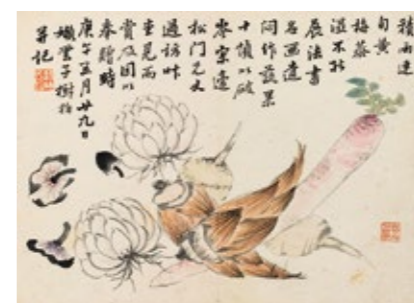 積雨連
旬黄
梅蒸
溼不能
展法書
名画遣
閒作蔬果
十幀以破
岑寂適
松門兄丈
過訪吟
堂見而
賞及因以
奉贈時
庚午五月廿九日
嬾雲子樹柏
并記